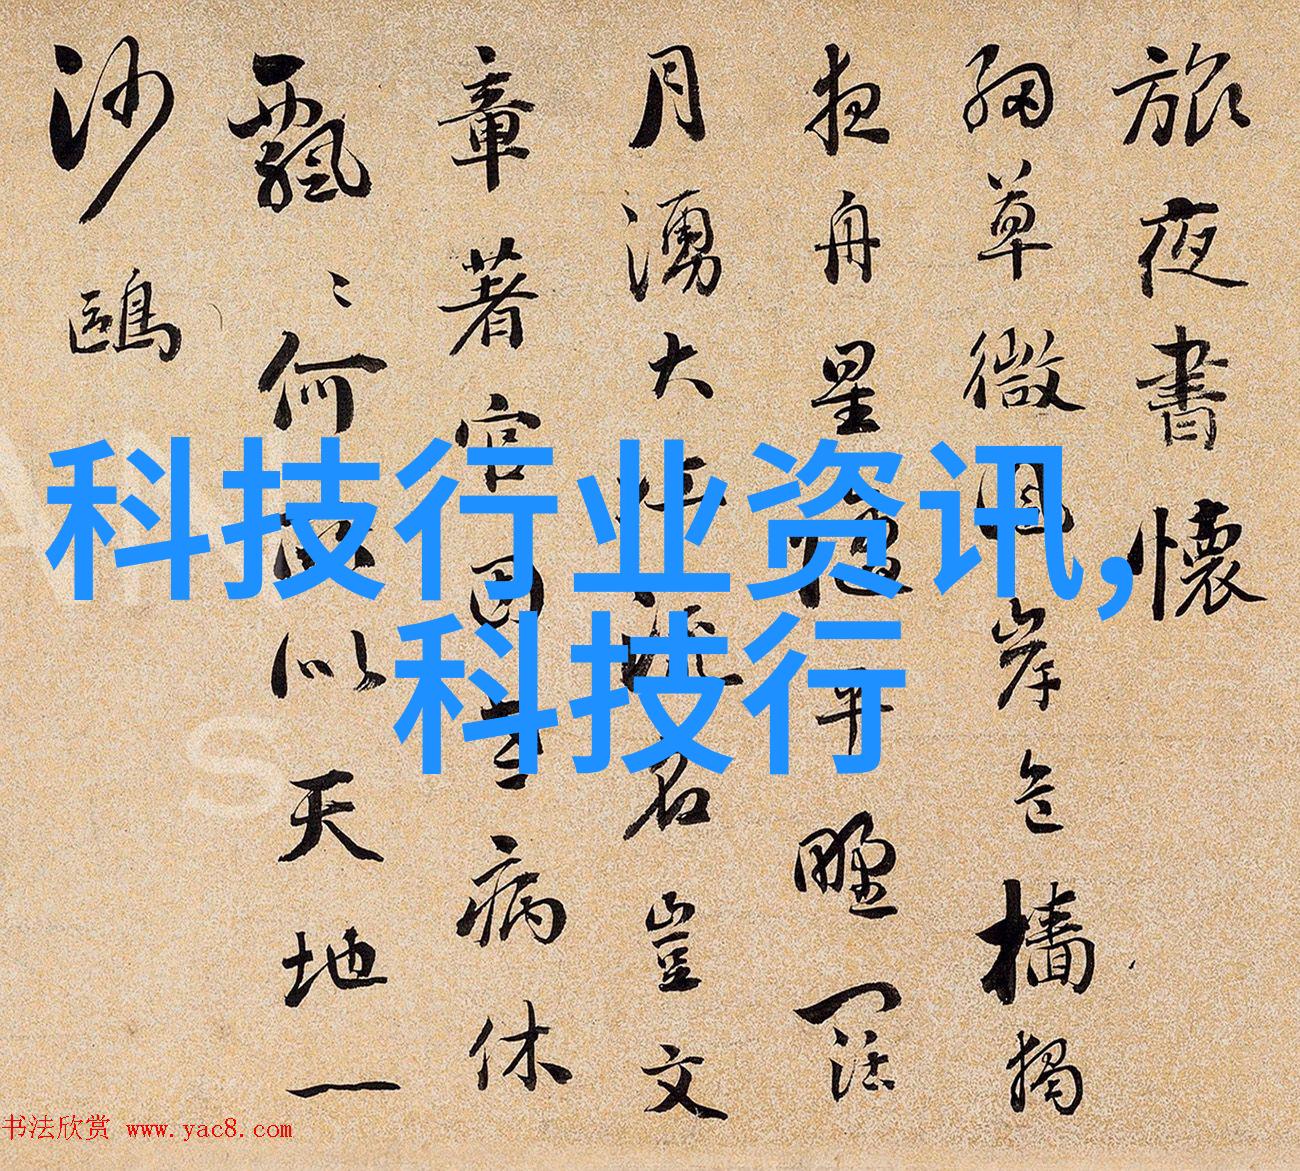 旅夜書懷
細草微風岸危檣獨
夜舟星隨平野闊
月湧大江流名豈文
章著官因老病休
飄〻何所似天地一
沙鷗
科技行业资讯,
科技行
书法欣赏 www.yac8.com